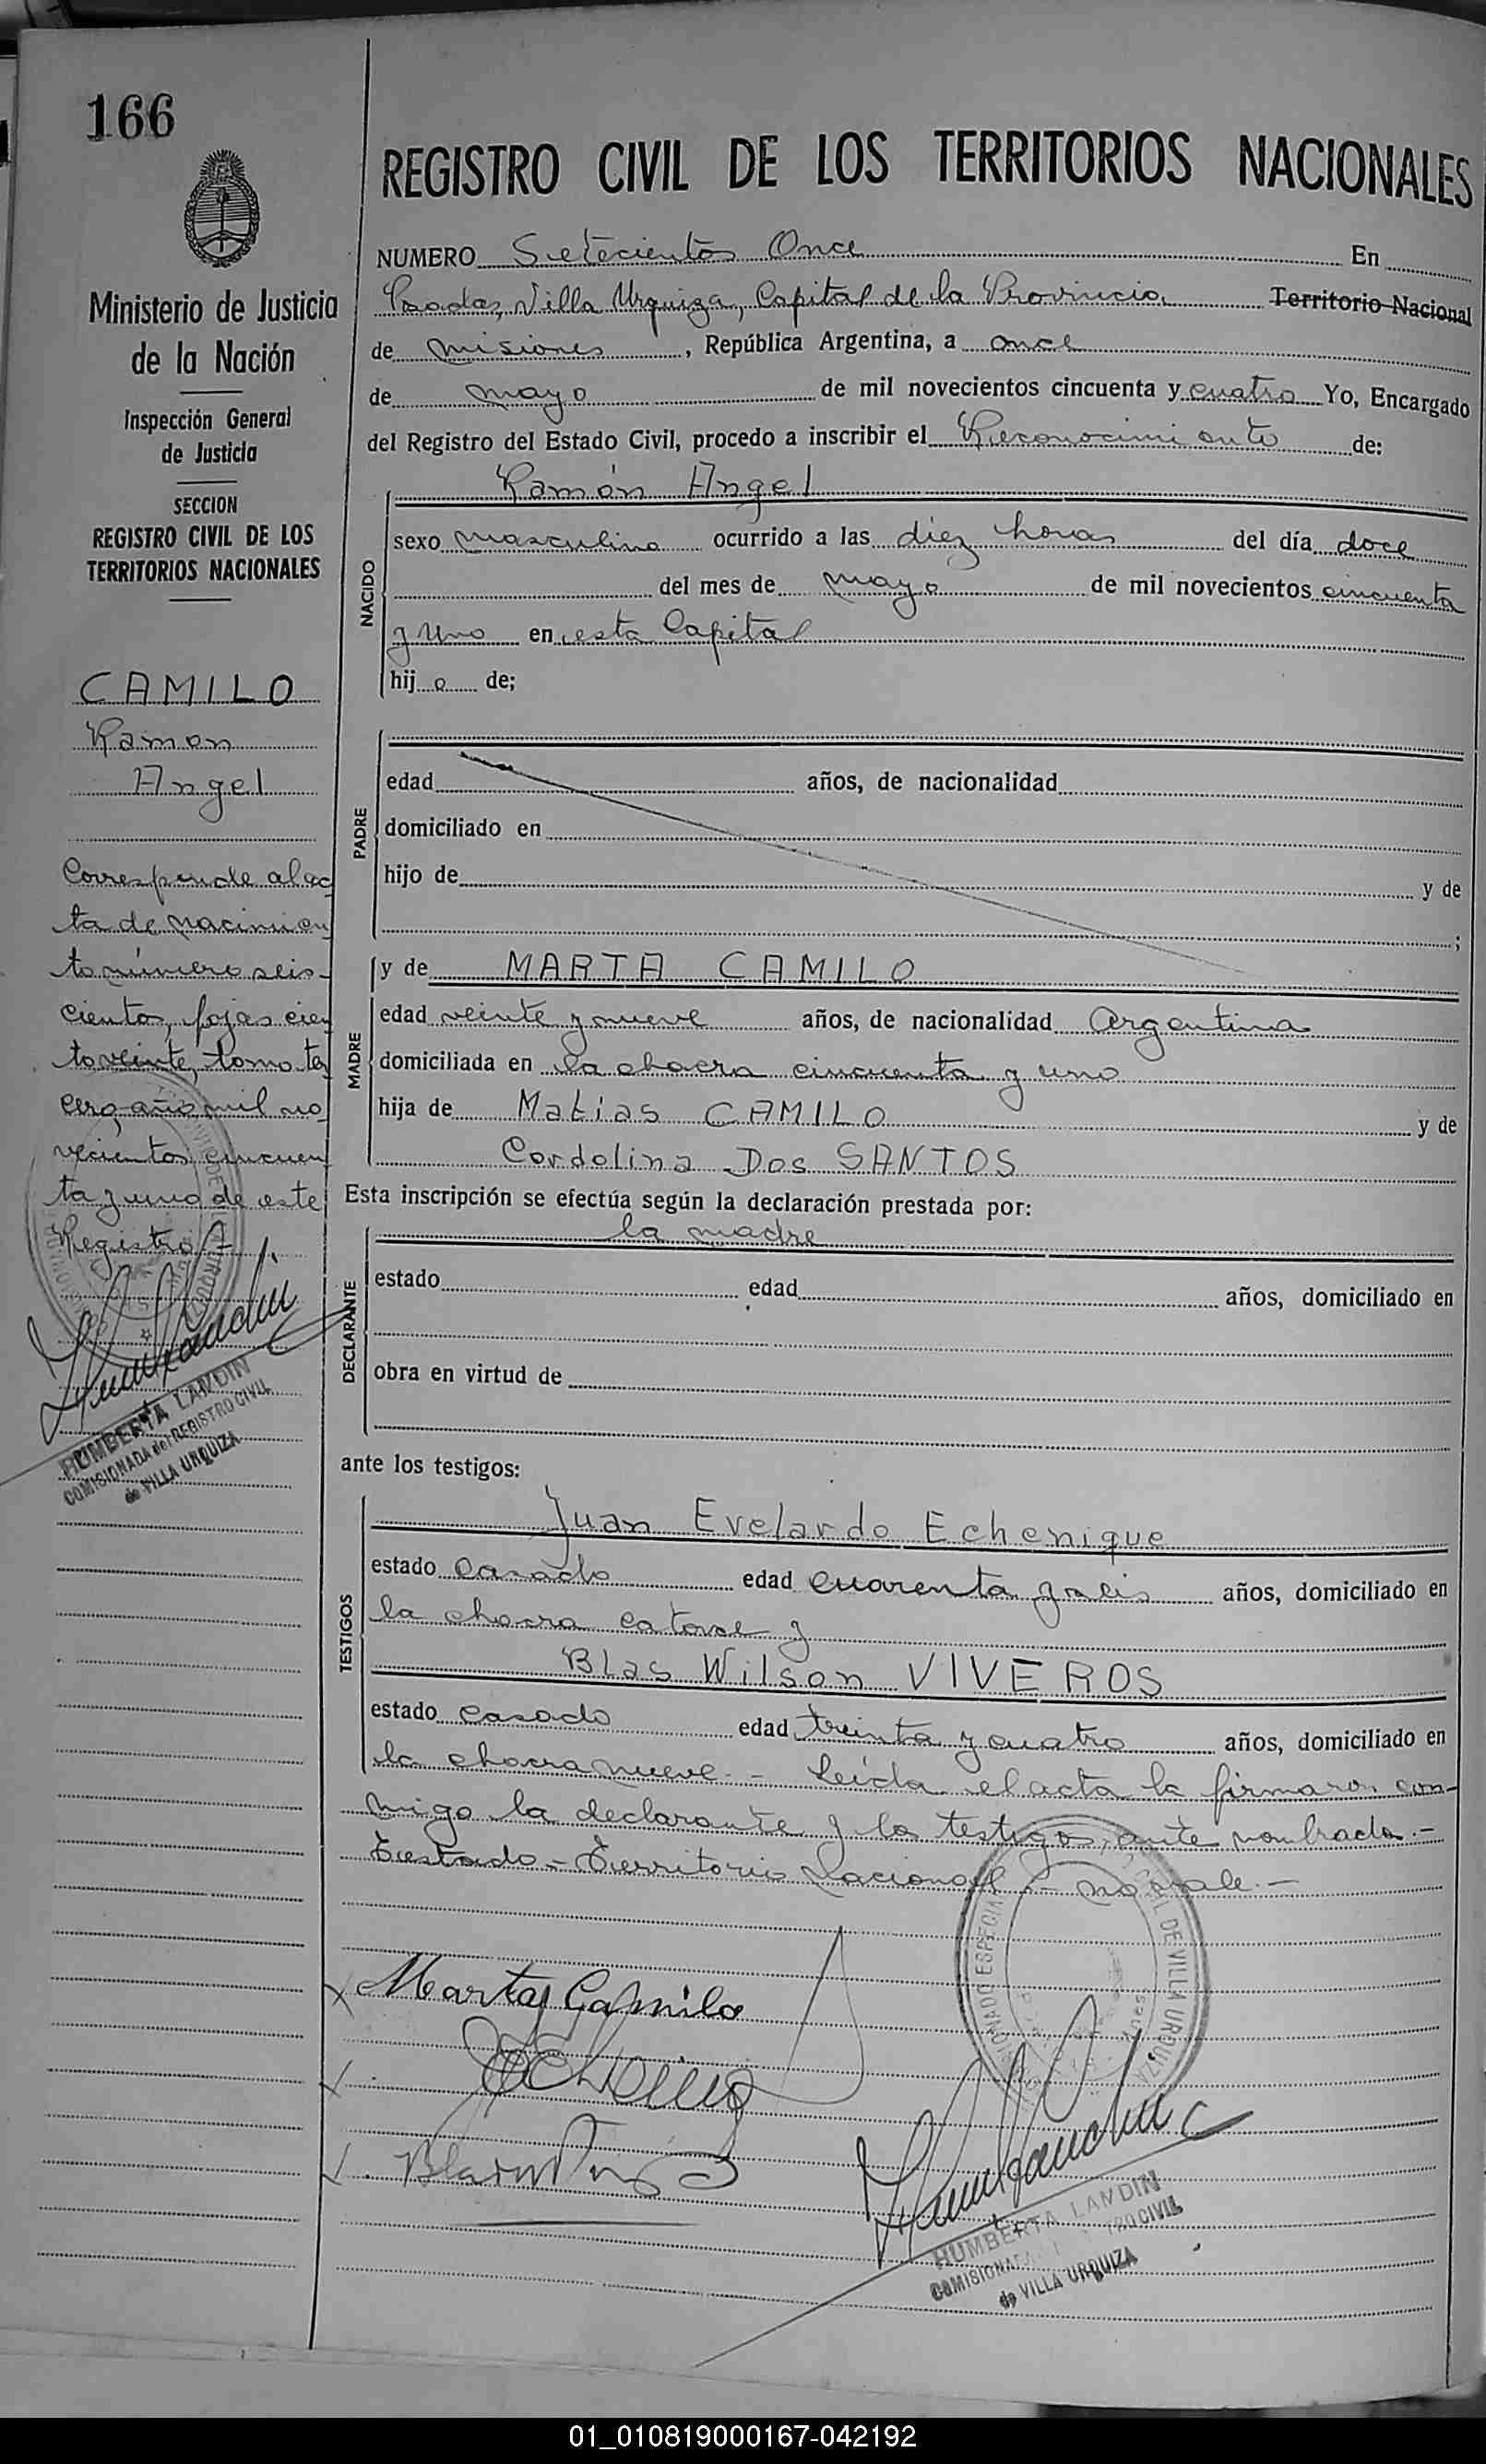 166
Ministerio de Justicia
de la Nación
Inspección General
de Justicia
SECCION
REGISTRO CIVIL DE LOS
TERRITORIOS NACIONALES
CAMILO
Ramon
Angel
Corresponde al ac
ta de nacimien
to número seis-
cientos, fojas cien
to veinte, tomo ter
cero, año mil no
vecientos cincuen
ta y uno de este
Registro.-
HUMBERTA LANDIN
COMISIONADA del REGISTRO CIVIL
de VILLA URQUIZA
REGISTRO CIVIL DE LOS TERRITORIOS NACIONALES
NUMERO Setecientos Once En
Posadas, Villa Urquiza, Capital de la Provincia Territorio Nacional
de misiones, República Argentina, a once
de mayo de mil novecientos cincuenta y cuatro Yo, Encargado
del Registro del Estado Civil, procedo a inscribir el Reconocimiento de:
Ramón Angel
NACIDO
sexo masculino ocurrido a las diez horas del día doce
del mes de mayo de mil novecientos cincuenta
y uno en esta Capital
hijo de;
PADRE
edad años, de nacionalidad
domiciliado en
hijo de y de
;
MADRE
y de MARTA CAMILO
edad veinte y nueve años, de nacionalidad Argentina
domiciliada en la chacra cincuenta y uno
hija de Matias CAMILO y de
Cordolina Dos SANTOS
Esta inscripción se efectúa según la declaración prestada por:
la madre
DECLARANTE
estado edad años, domiciliado en
obra en virtud de
ante los testigos:
TESTIGOS
Juan Evelardo Echenique
estado casado edad cuarenta y seis años, domiciliado en
la chacra catorce y
Blas Wilson VIVEROS
estado casado edad treinta y cuatro años, domiciliado en
la chacra nueve.- Leída el acta la firmaron con-
migo la declarante y los testigos, ante nombrados.-
Testado - Territorio Nacional - no vale.-
Marta Camilo
HUMBERTA LANDIN
de VILLA URQUIZA
01_010819000167-042192